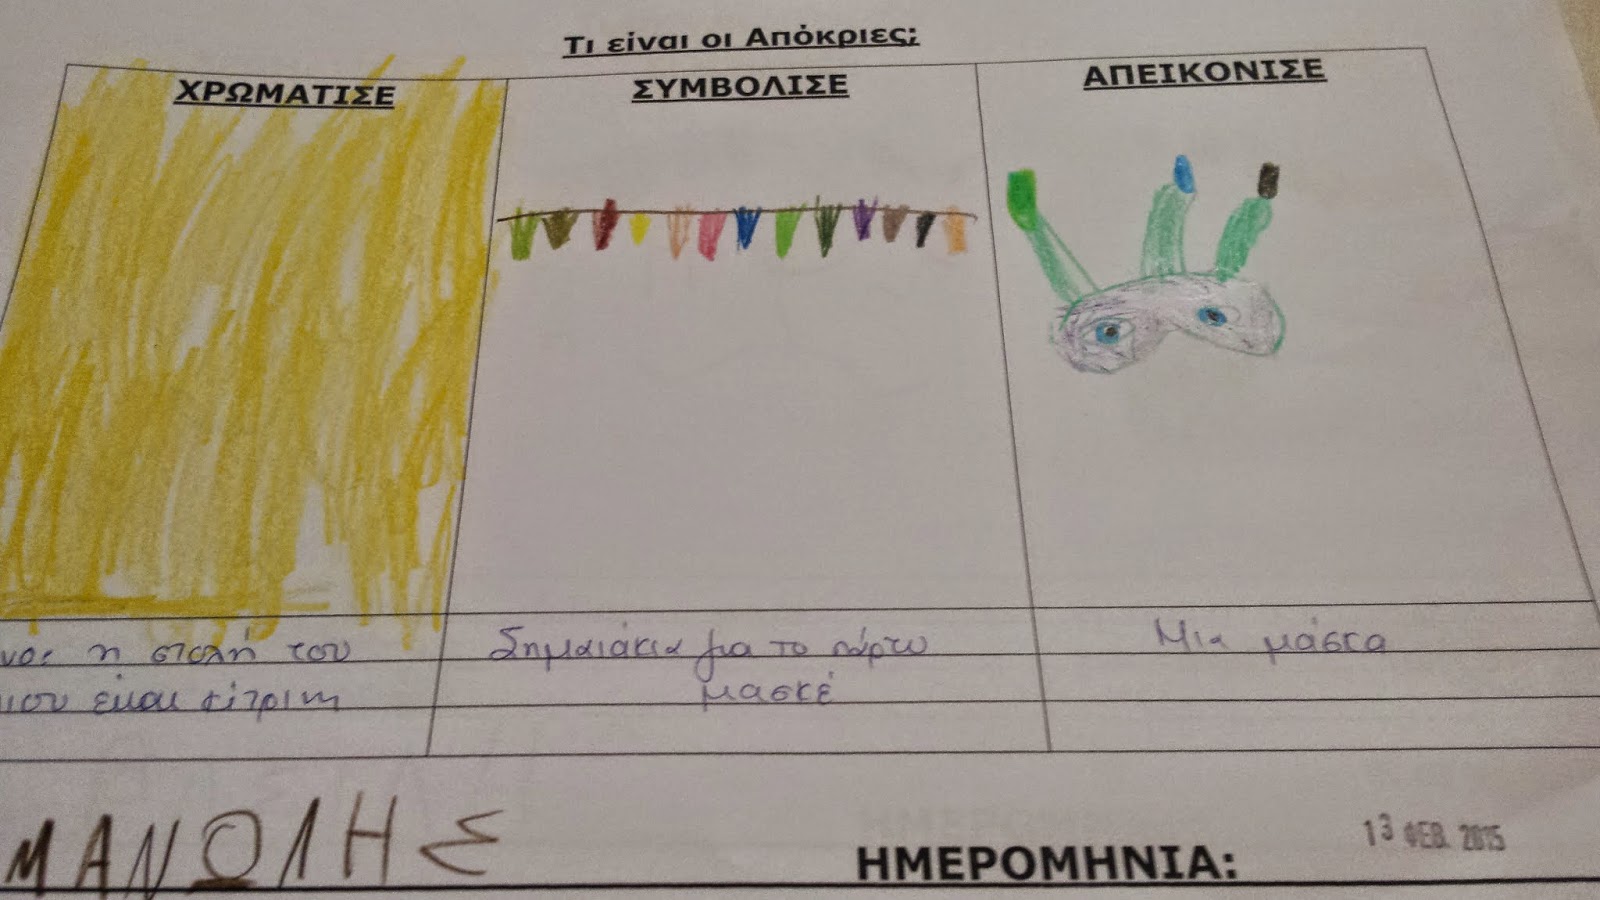 Τι είναι οι Απόκριες;
ΧΡΩΜΑΤΙΣΕ
ΣΥΜΒΟΛΙΣΕ
ΑΠΕΙΚΟΝΙΣΕ
η στολή του
είναι κίτρινη
Σημαιάκια για το πάρτυ
μασκέ
Μια μάσκα
ΜΑΝΩΛΗΣ
ΗΜΕΡΟΜΗΝΙΑ:
13 ΦΕΒ. 2015